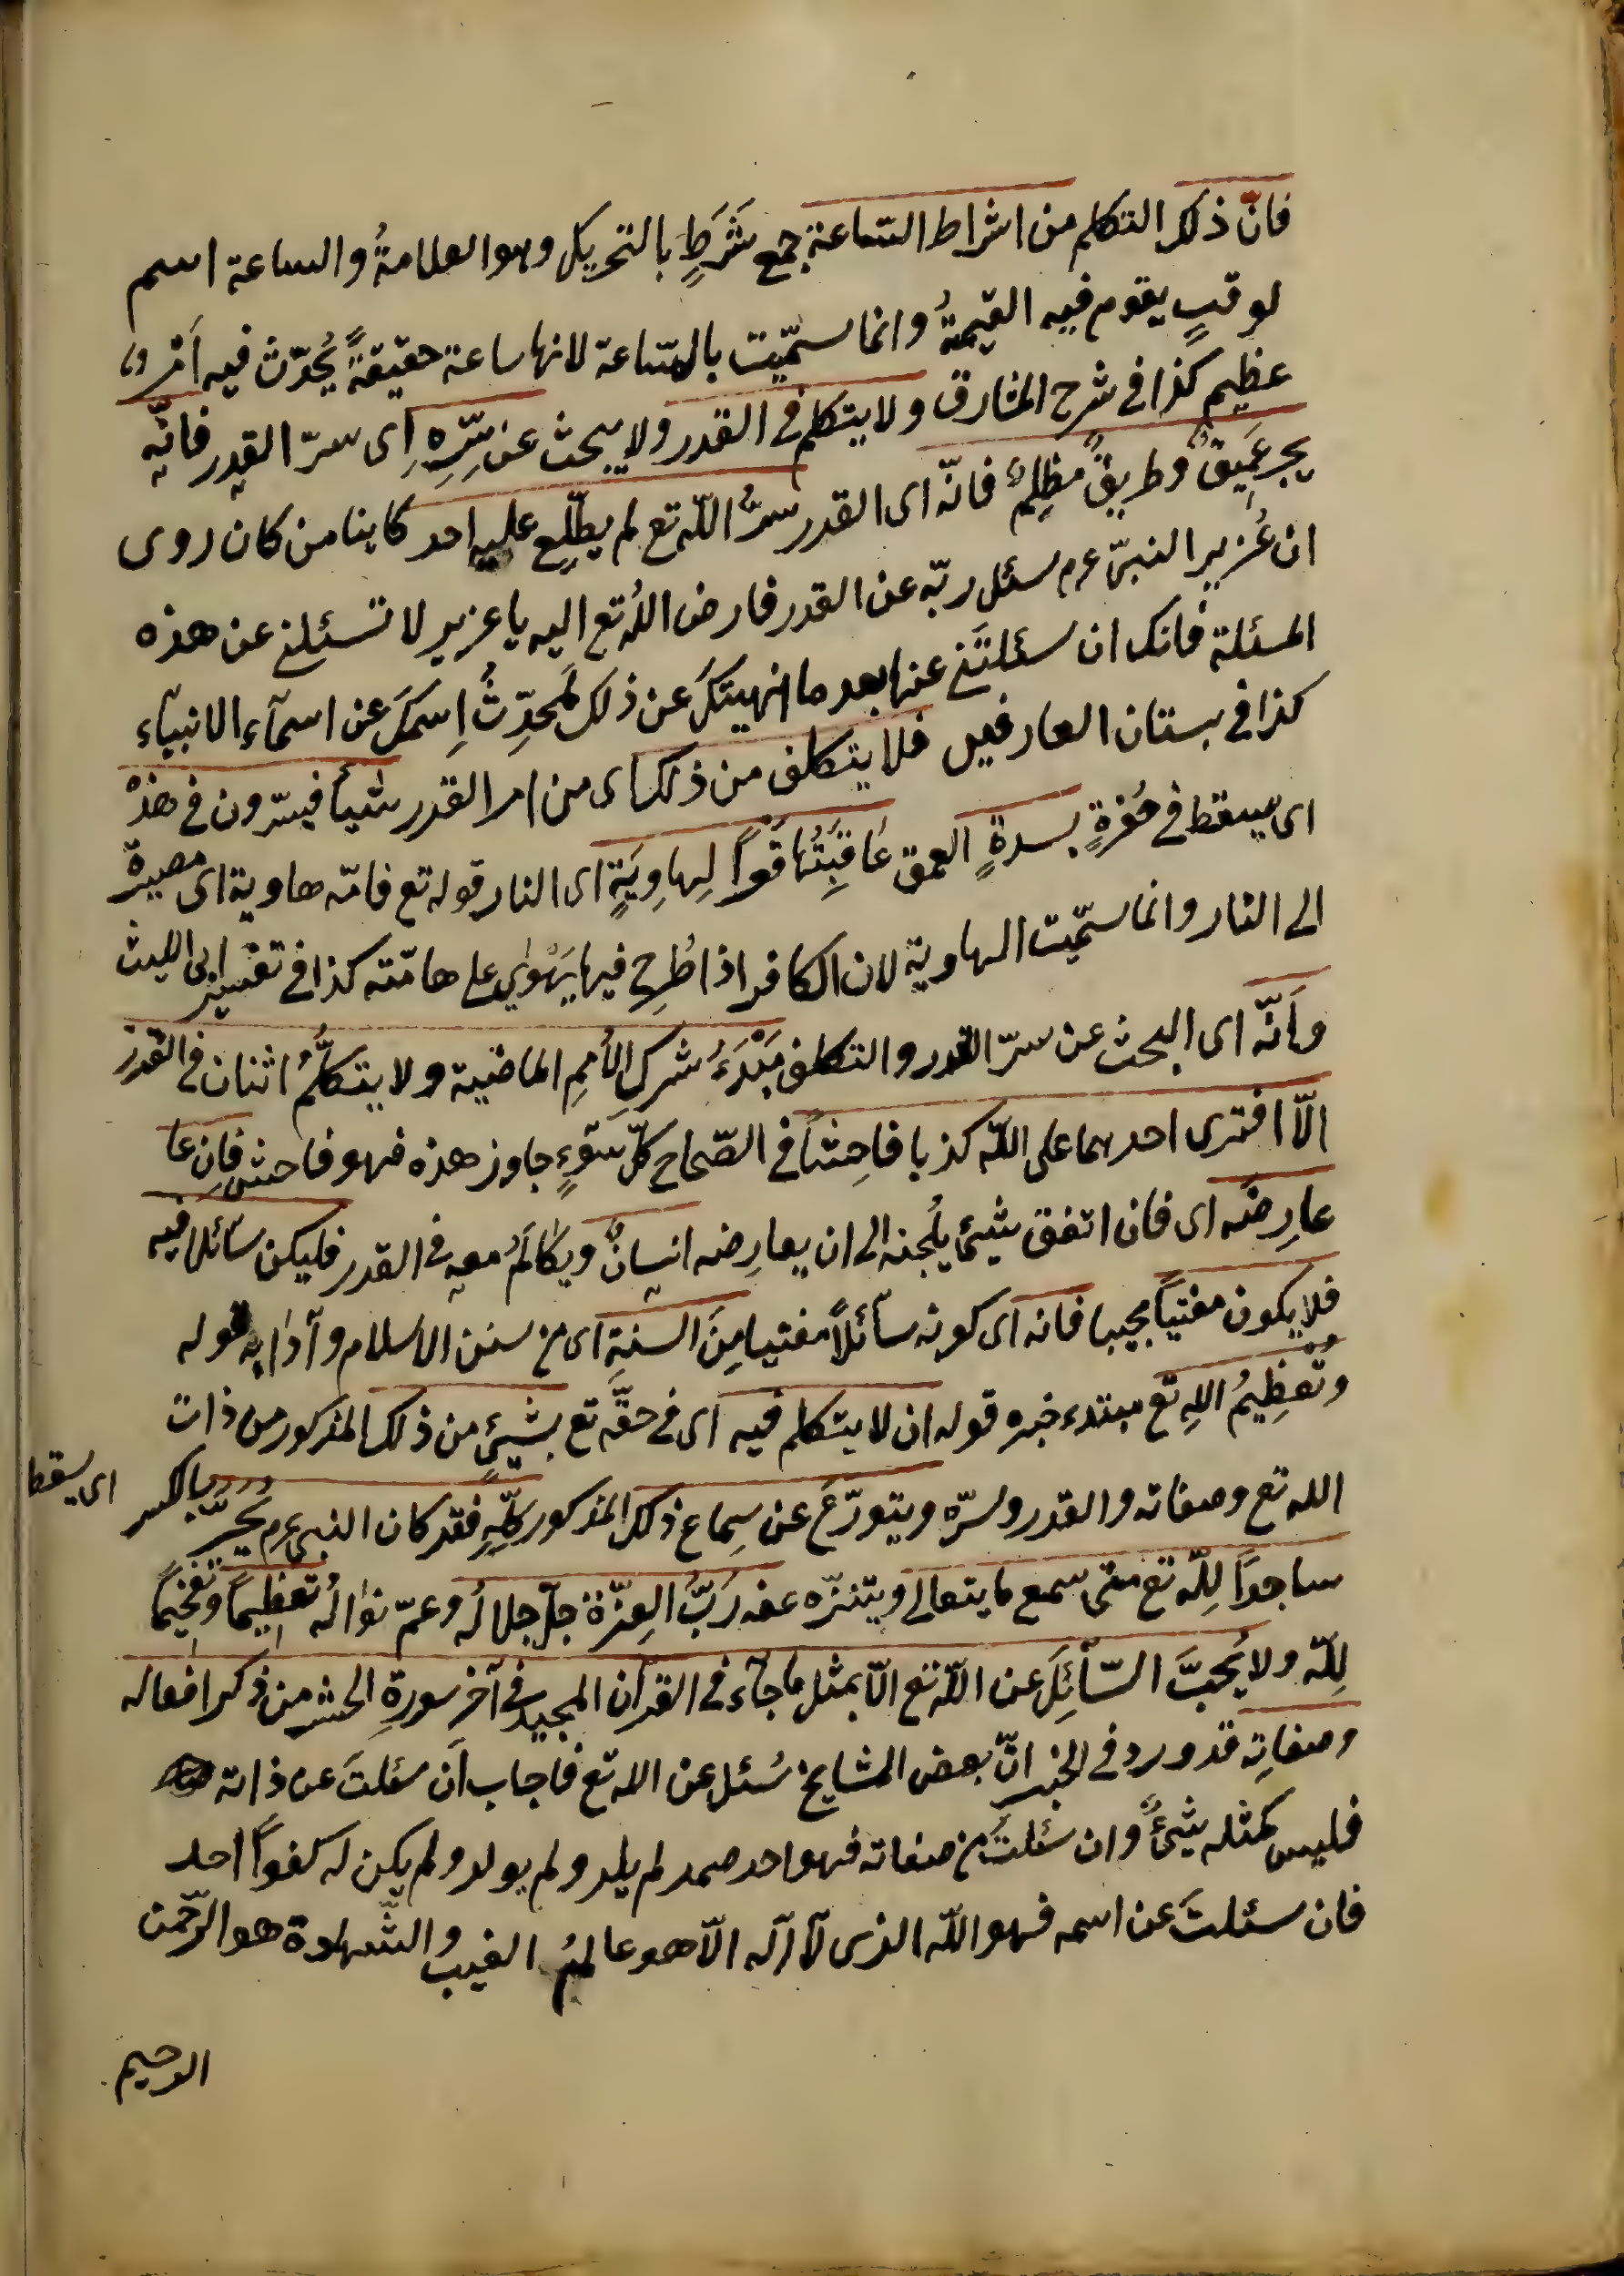 فانّ ذلك التكلم من اشراط الساعة جمع شَرَطٍ بالتحريك وهو العلامةُ والساعة اسم
لوقتٍ يقوم فيه القيمةُ وانما سمّيت بالساعة لانها ساعة حقيقةً يُحدّث فيه اَمْرٌ
عظيم كذا فى شرح المشارق ولا يتكلم فى القدر ولا يبحث عن سِرّهِ اى سرّ القدر فانّه
بحر عَمِيقٌ وطريقٌ مظلِمٌ فانّه اى القدر سرُّ اللّه تع لم يطّلِع عليه احد كاينا من كان روى
ان عُزير النبىّ عم سئل ربّه عن القدر فارض اللّه تع اليه يا عزير لا تسئلنى عن هذه
المسئلة فانك ان سئلتَنى عنها بعد ما انهيتكَ عن ذلك لمحدّثُ اِسمكَ عن اسمآء الانبيآء
كذا فى بستان العارفين فلا يتكلف من ذلك اى من امر القدر شيأ فيتردون فى هذْ
اى يسقط فى حُفرةٍ بسدةٍ العمق عَاقبَتُهَا قَعْراً لِهاوِيَةٍ اى النار قوله تع فامّه هاوية اى مصيرة
الى النار وانما سمّيت الهاوية لان الكافر اذا طُرِح فيها يَهْوِى على هامّته كذا فى تفسير ابى الليث
وَانّه اى البحث عن سرّ القدر والتكلف مَبْدَءُ شرك الأممِ الماضية ولا يتكلّمُ اثنان فى القدرِ
الّا افترى احدهما على اللّه كذبا فاحِشاً فى الصّحاح كلّ سَوءٍ جاوز هذه فهو فاحش فانِ عا
عارِضَه اى فان اتفق شيئ يُلجئه الى ان يعارِضه انسانٌ ويكالمُ معه فى القدر فليكن سآئلا فيه
فلا يكون مفتياً مجيبا فانه اى كونه سآئلاً مفتيا مِنَ السنةِ اى من سنن الاسلام وآدابه قوله
وتَعْظِيمُ اللهِ تع مبتدء خبره قوله ان لا يتكلم فيه اى فى حقّه تع بشيئٍ من ذلك المذكور من ذات
الله تع وصفاته والقدر وسرّه ويتورّعَ عن سِماع ذلك المذكور كلّهِ فقد كان النبى عم يَخُرّ بالكسر اى يسقط
ساجدًا لِلّه تع متى سمع ما يتعالى ويتنزّه عنه رَبُّ العِزّة جلّ جلالُه وعمّ نوالُه تعظيمًا وتفخيمًا
لِلّه ولا يُجيبَ السّآئِلَ عن اللّه تع الّا بمثل ما جآء فى القرآن المجيد فى آخر سورةِ الحشر من ذكر افعاله
وصفاتِه قد ورد فى الخبر انّ بعض المشايخ سُئل عن الله تع فاجاب اَن سئلتَ عن ذاته
فليس كمثله شيئٌ وان سئلتَ من صفاته فهو احد صمد لم يلد ولم يولد ولم يكن له كفواً احد
فان سئلتَ عن اسمه فهو اللّه الذى لآ اله الّا هو عالمُ الغيب والشّهادة هو الرحّمن
الرحيم